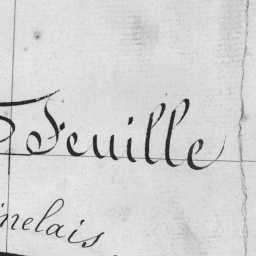 Feuille
inelais